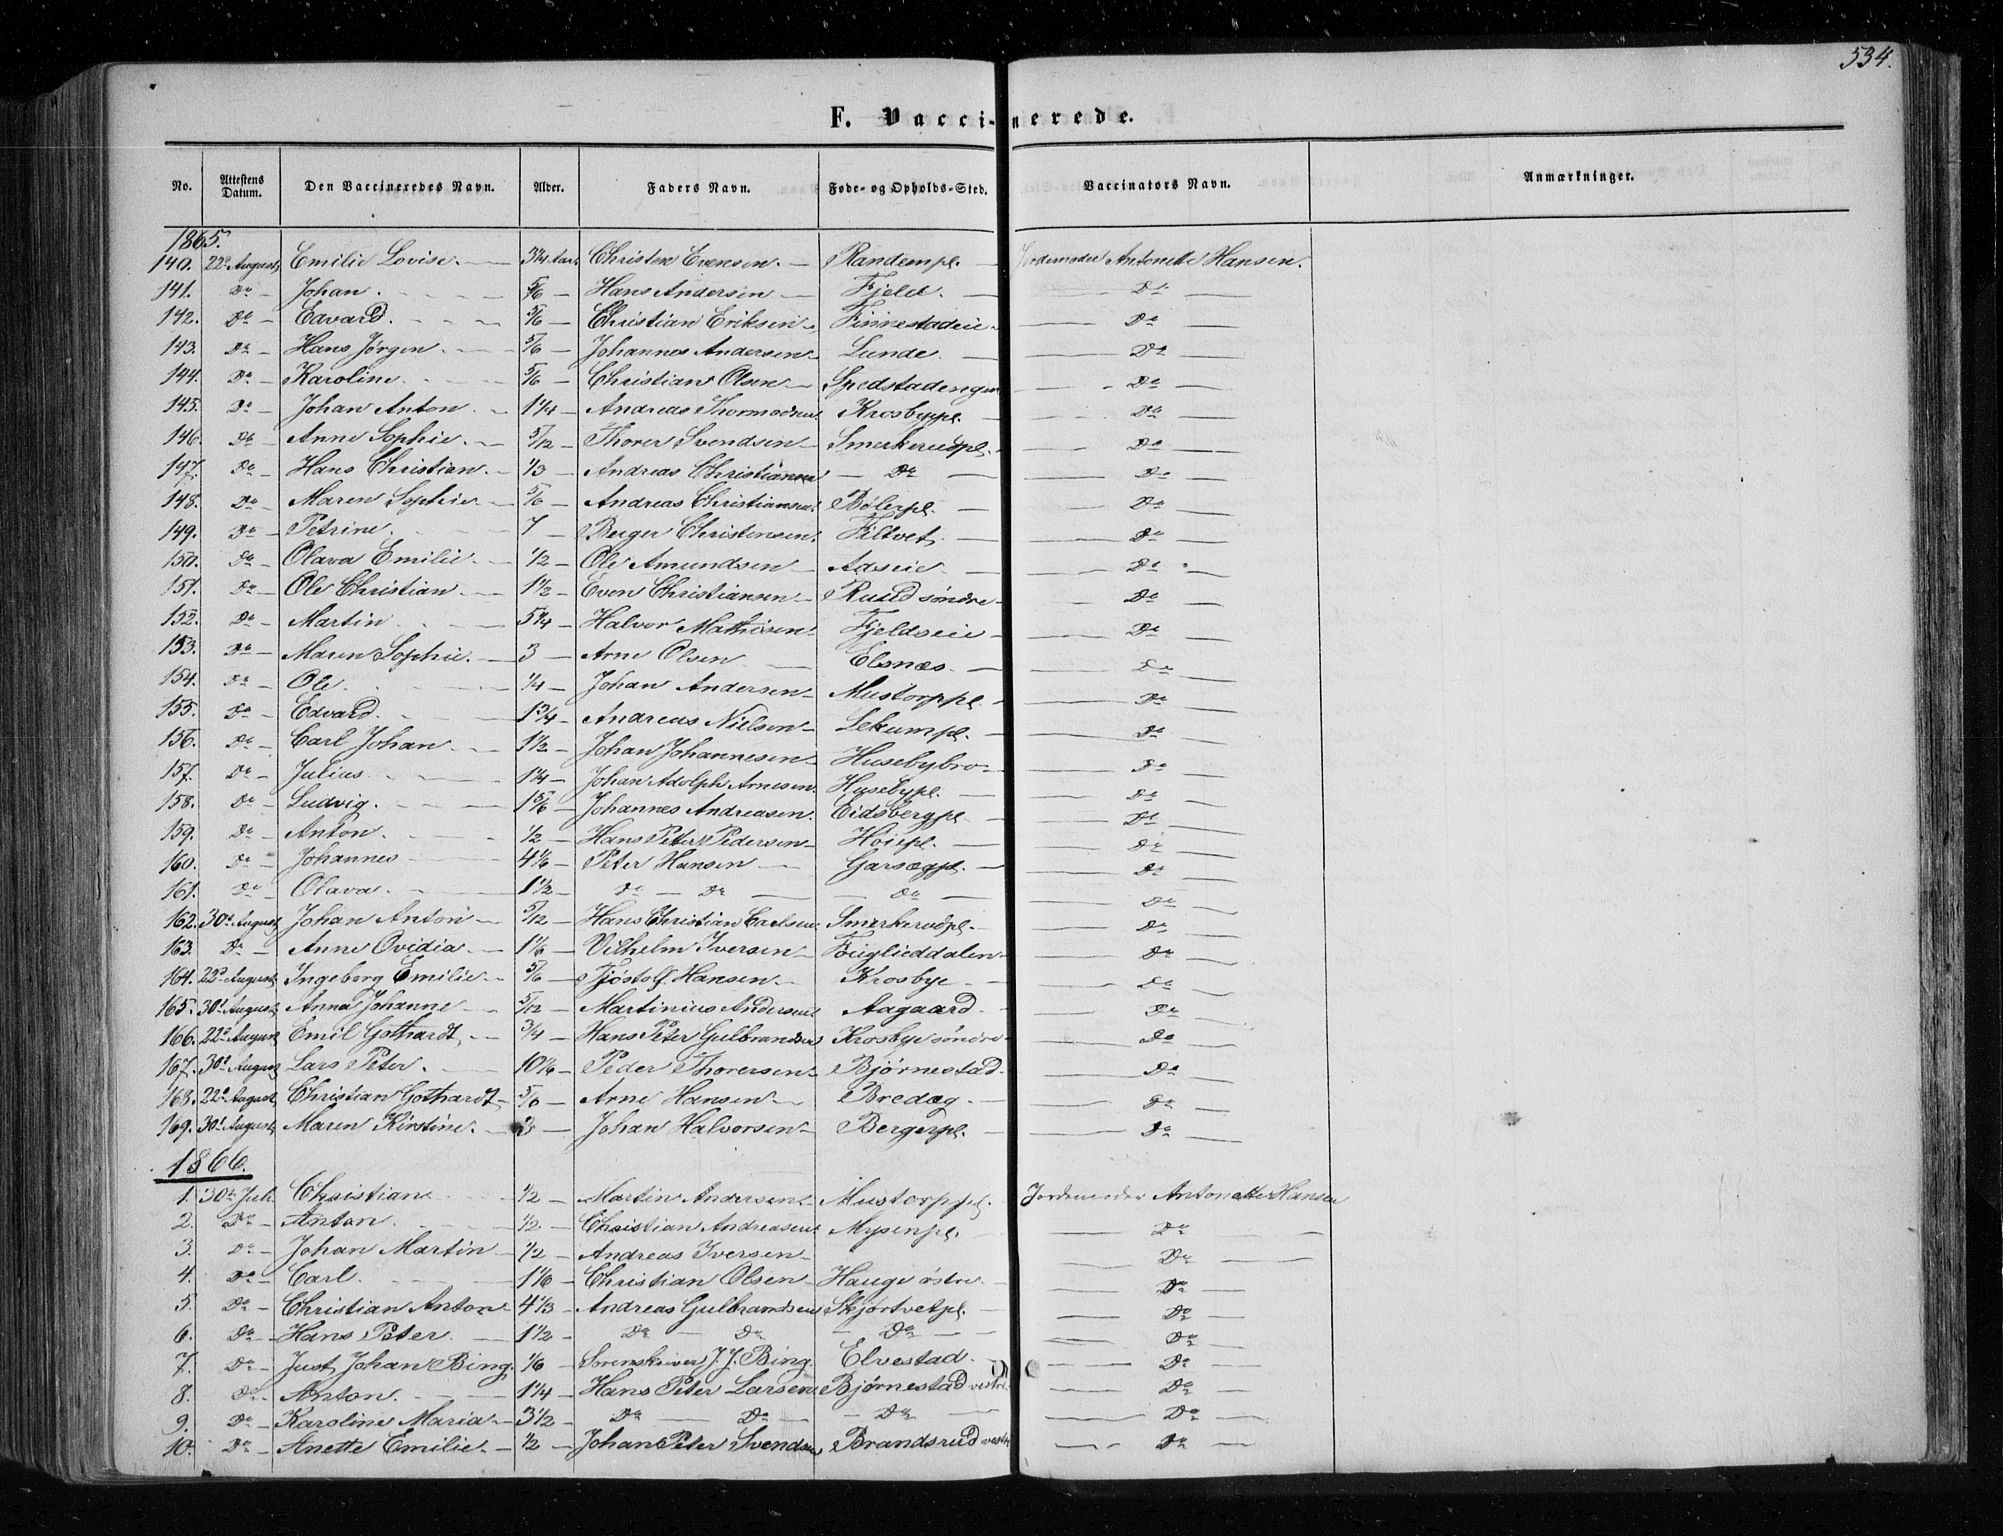 534.
F. Vaccinerede.
No. | Attestens Datum. | Den Vaccineredes Navn. | Alder. | Faders Navn. | Føde- og Opholds-Sted. | Vaccinators Navn. | Anmærkninger.
1865.
140. 22d August Emilie Lovise. Christen Evensen. Randempl. Jordemoder Antonette Hansen.
141. Do Johan. 5/6 Hans Andersen Fjeld. Do
142. Do Edvard. 5/6 Christian Eriksen Finnestadeie Do
143. Do Hans Jørgen 5/6 Johannes Andersen Lunde. Do
144. Do Karoline. 5/6 Christian Olsen Spedstadengen Do
145. Do Johan Anton 1 1/4 Andreas Thormodsen Krosbypl. Do
146. Do Anne Sophie. 5/12 Thorer Svendsen Smerkerudpl. Do
147. Do Hans Christian. 1/3 Andreas Christiansen Do Do
148. Do Maren Sophie 5/6 Andreas Christiansen Bølerpl. Do
149. Do Petrine. 7 Berger Christensen. Filtvet. Do
150. Do Olava Emilie. 1/2 Ole Amundsen Adseie Do
151. Do Ole Christian 1 1/2 Even Christiansen Ruud søndre Do
152. Do Martin 5 1/4 Halvor Mathisen Fjeldseie Do
153. Do Maren Sophie. 3 Arne Olsen Elsnæs Do
154. Do Ole. 1/4 Johan Andersen Mustorppl. Do
155. Do Edvard. 1 3/4 Andreas Nielsen Lekumpl. Do
156. Do Carl Johan 1 1/2 Johan Johannesen Husebybro Do
157. Do Julius 1 1/4 Johan Adolph Arnesen. Husebypl. Do
158. Do Ludvig. 1 5/6 Johannes Andreasen. Eidsbergpl. Do
159. Do Anton. 1/2 Hans Peter Pedersen Høiepl. Do
160. Do Johannes 4 1/6 Peter Hansen Garsegpl. Do
161. Do Olava. 1 1/2 Do Do Do Do
162. 30d August Johan Anton 5/12 Hans Christian Carlsen Smerkerudpl. Do
163. Do Anne Ovidia 1 1/6 Vilhelm Iversen Fuglieddalen Do
164. 22d August Ingeborg Emilie 5/6 Tjøstolf Hansen Krosbye Do
165. 30d August Anna Johanne 5/12 Martinius Andersen Aagaard Do
166. 22d August Emil Gothardt 3/4 Hans Peter Gulbrandsen Krosbye søndre Do
167. 30d August Lars Peter. 10 1/6 Peder Thorersen Bjørnestad Do
168. 22d August Christian Gothardt 5/6 Arne Hansen Bredeg. Do
169. 30d August Maren Kirstine. Johan Halvorsen Bergerpl. Do
1866.
1. 30te Juli Christian 1/2 Martin Andersen Mustorppl. Jordemoder Antonette Hansen
2. Do Anton. 1/2 Christian Andreasen Mysenpl. Do
3. Do Johan Martin 1/2 Andreas Iversen Do
4. Do Carl. 1 1/6 Christian Olsen Hauge østre Do
5. Do Christian Anton 4 1/3 Andreas Gulbrandsen Skjørtvetpl. Do
6. Do Hans Peter. 1 1/2 Do Do Do Do
7. Do Just Johan Bing. 1/6 Sorenskriver J. J. Bing. Elvestad. Do
8. Do Anton. 1 1/4 Hans Peter Larsen Bjørnestad vestre Do
9. Do Karoline Maria 3 1/2 Do Do Do Do
10. Do Anette Emilie 1/2 Johan Peter Svendsen Brandsrud vestre Do